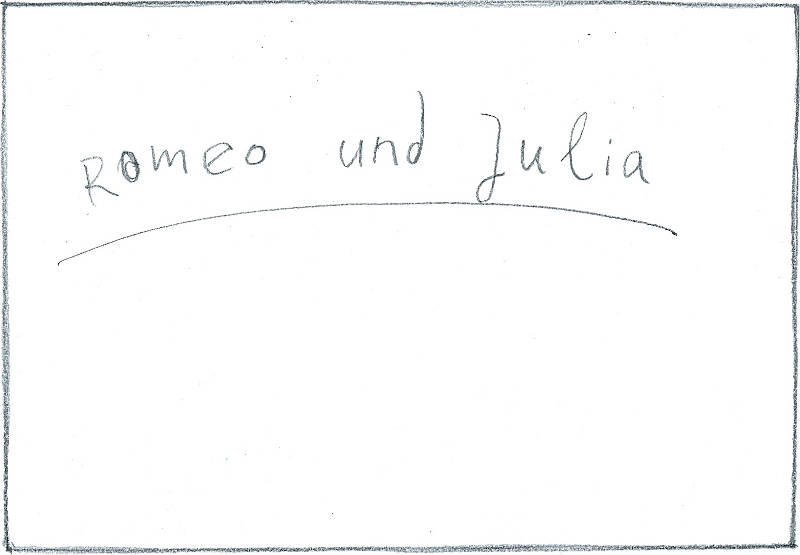 Romeo und Julia